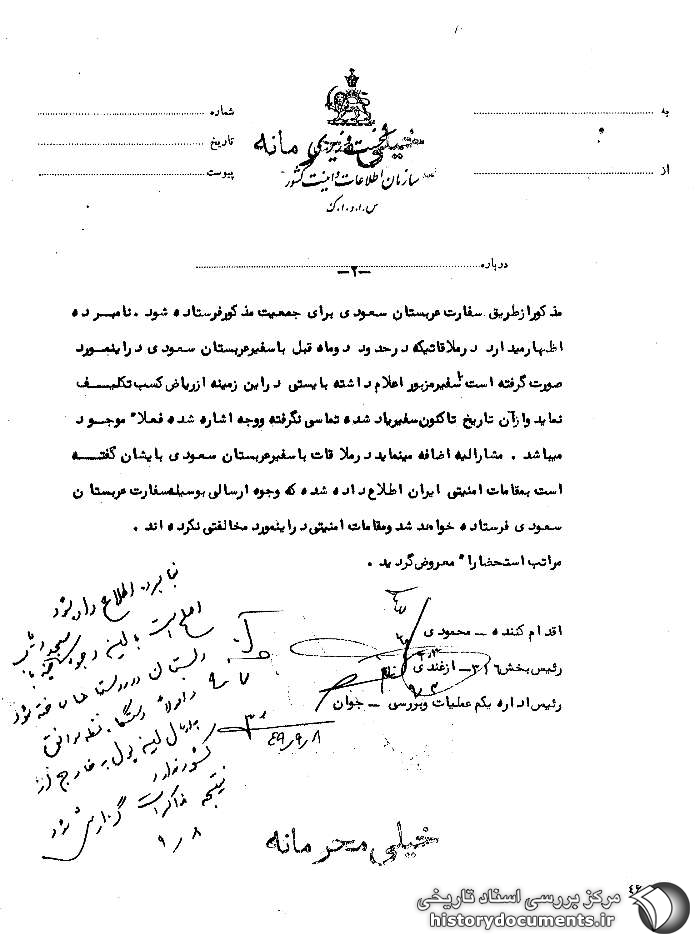 خیلی محرمانه
نخست وزیری
سازمان اطلاعات و امنیت کشور
س.ا.و.ا.ک
به
از
شماره
تاریخ
پیوست
درباره
-۲-
مذکور از طریق سفارت عربستان سعودی برای جمعیت مذکور فرستاده شود . نامبرده
اظهار میدارد در ملاقاتیکه در حدود دو ماه قبل با سفیر عربستان سعودی در اینمورد
صورت گرفته است سفیر مزبور اعلام داشته بایستی در این زمینه از ریاض کسب تکلیف
نماید و از آن تاریخ تاکنون سفیر یاد شده تماسی نگرفته و وجه اشاره شده فعلا" موجود
میباشد . مشارالیه اضافه مینماید در ملاقات با سفیر عربستان سعودی بایشان گفته
است بمقامات امنیتی ایران اطلاع داده شده که وجوه ارسالی بوسیله سفارت عربستان
سعودی فرستاده خواهد شد و مقامات امنیتی در اینمورد مخالفتی نکرده اند .
مراتب استحضارا" معروض گردید .
اقدام کننده – محمودی
رئیس بخش ۳۱۶ – ازغندی
رئیس اداره یکم عملیات و بررسی – جوان
۴۹/۹/۸
اطلاع داد شود
اصلح است
دبستان در روستاها ساخته شود
پول به خارج از
کشور ندارد
نتیجه مذاکرات گزارش شود
۹/۸
خیلی محرمانه
۴۶
مرکز بررسی اسناد تاریخی
historydocuments.ir